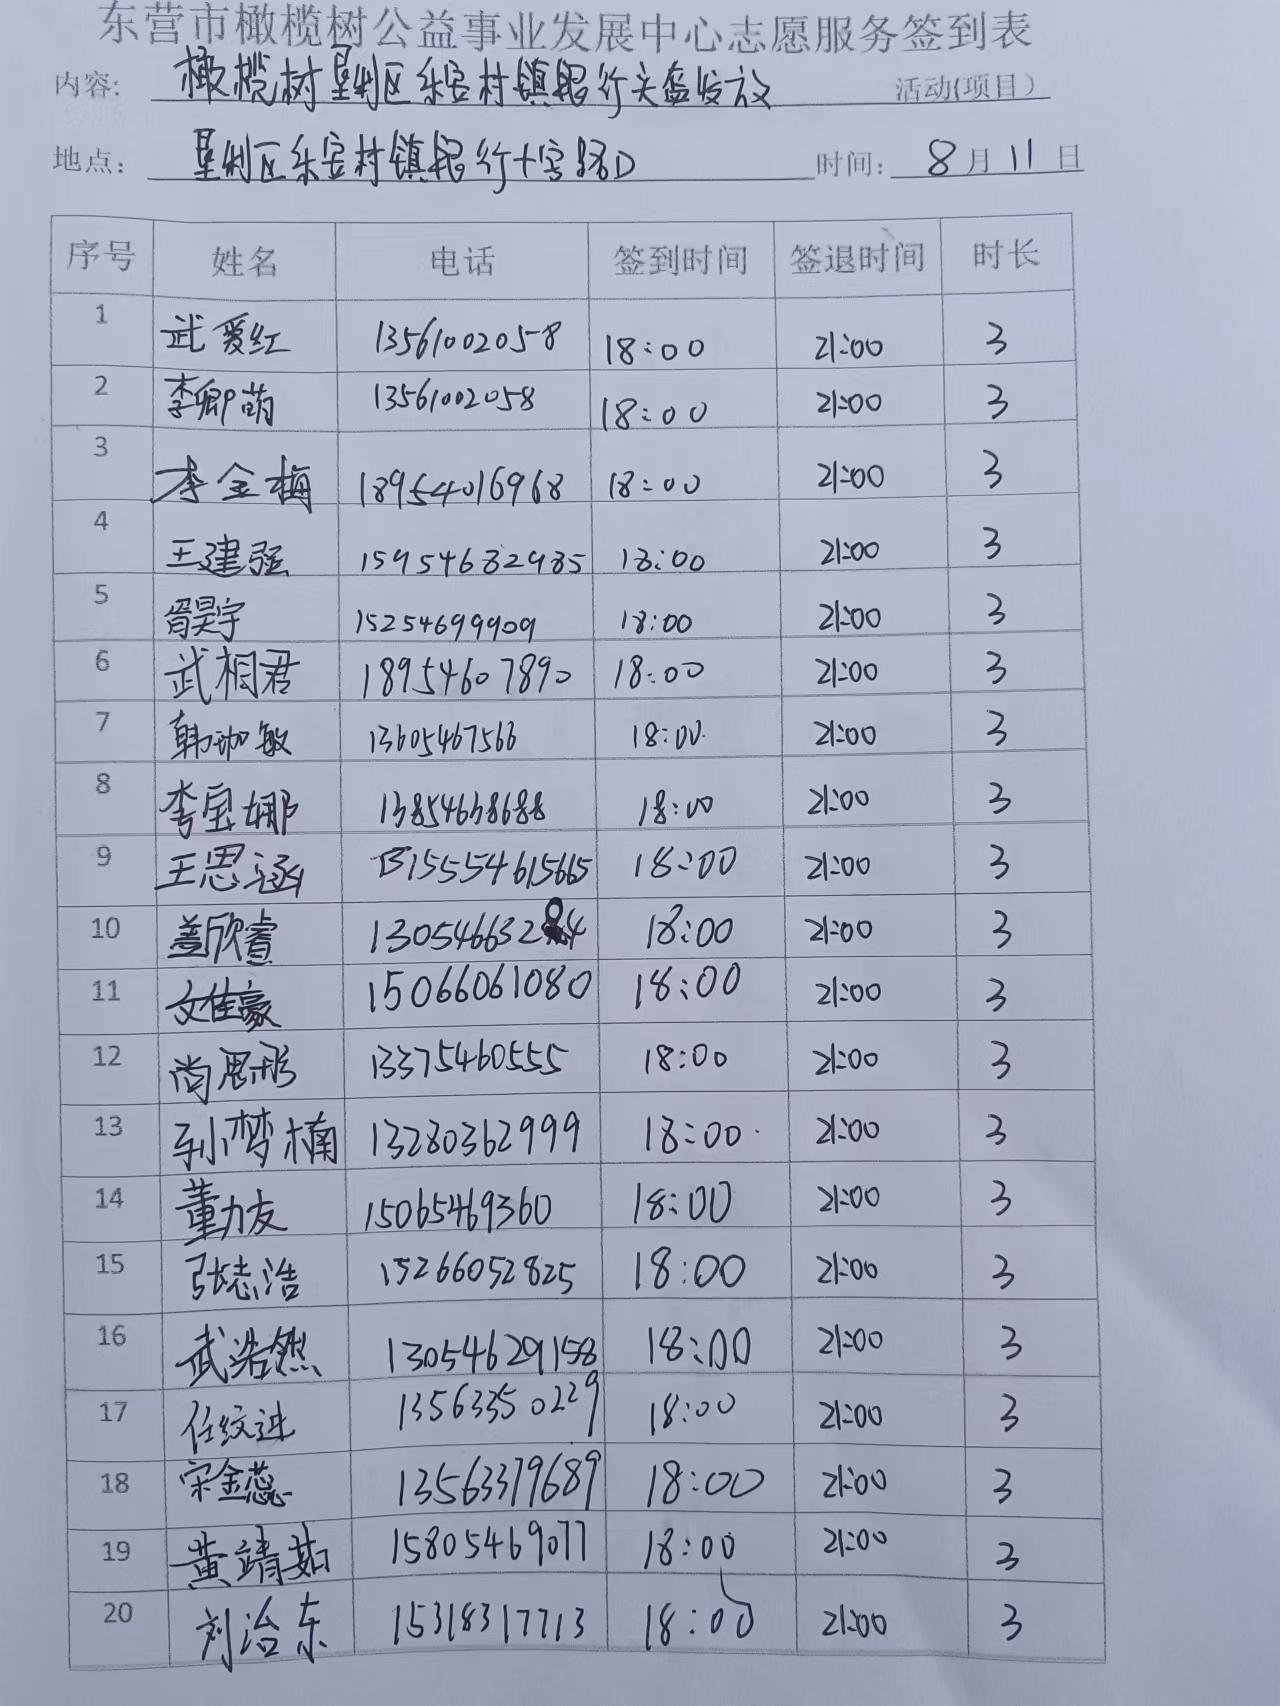 东营市橄榄树公益事业发展中心志愿服务签到表
内容: 橄榄树垦利区乐安村镇银行头盔发放 活动(项目)
地点: 垦利区乐安村镇银行十字路口 时间: 8月11日
序号 姓名 电话 签到时间 签退时间 时长
1 武爱红 13561002058 18:00 21:00 3
2 李卿萌 13561002058 18:00 21:00 3
3 李金梅 18954016968 18:00 21:00 3
4 王建强 15954682985 18:00 21:00 3
5 胥昊宇 15254699909 18:00 21:00 3
6 武相君 18954607890 18:00 21:00 3
7 韩珈敏 13605467566 18:00 21:00 3
8 李宝娜 13854638688 18:00 21:00 3
9 王思涵 15554615665 18:00 21:00 3
10 盖欣睿 13054663284 18:00 21:00 3
11 文佳豪 15066061080 18:00 21:00 3
12 尚思彤 13375460555 18:00 21:00 3
13 孙梦楠 13280362999 18:00 21:00 3
14 董力友 15065469360 18:00 21:00 3
15 张志浩 15266052825 18:00 21:00 3
16 武浩然 13054629158 18:00 21:00 3
17 任纹进 13563350229 18:00 21:00 3
18 宋金蕊 13563379689 18:00 21:00 3
19 黄靖茹 15805469077 18:00 21:00 3
20 刘治东 15318317713 18:00 21:00 3